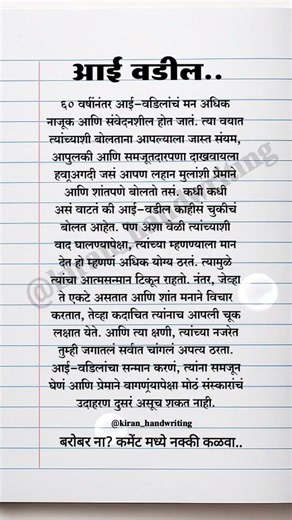 आई वडील..
६० वर्षांनंतर आई-वडिलांचं मन अधिक
नाजूक आणि संवेदनशील होत जातं. त्या वयात
त्यांच्याशी बोलताना आपल्याला जास्त संयम,
आपुलकी आणि समजूतदारपणा दाखवायला
हवा,अगदी जसं आपण लहान मुलांशी प्रेमाने
आणि शांतपणे बोलतो तसं. कधी कधी
असं वाटतं की आई-वडील काहीसं चुकीचं
बोलत आहेत. पण अशा वेळी त्यांच्याशी
वाद घालण्यापेक्षा, त्यांच्या म्हणण्याला मान
देत हो म्हणणं अधिक योग्य ठरतं. त्यामुळे
त्यांचा आत्मसन्मान टिकून राहतो. नंतर, जेव्हा
ते एकटे असतात आणि शांत मनाने विचार
करतात, तेव्हा कदाचित त्यांनाच आपली चूक
लक्षात येते. आणि त्या क्षणी, त्यांच्या नजरेत
तुम्ही जगातलं सर्वात चांगलं अपत्य ठरता.
आई-वडिलांचा सन्मान करणं, त्यांना समजून
घेणं आणि प्रेमाने वागणं यापेक्षा मोठं संस्कारांचं
उदाहरण दुसरं असूच शकत नाही.
@kiran_handwriting
बरोबर ना? कमेंट मध्ये नक्की कळवा..
@kiran_handwriting